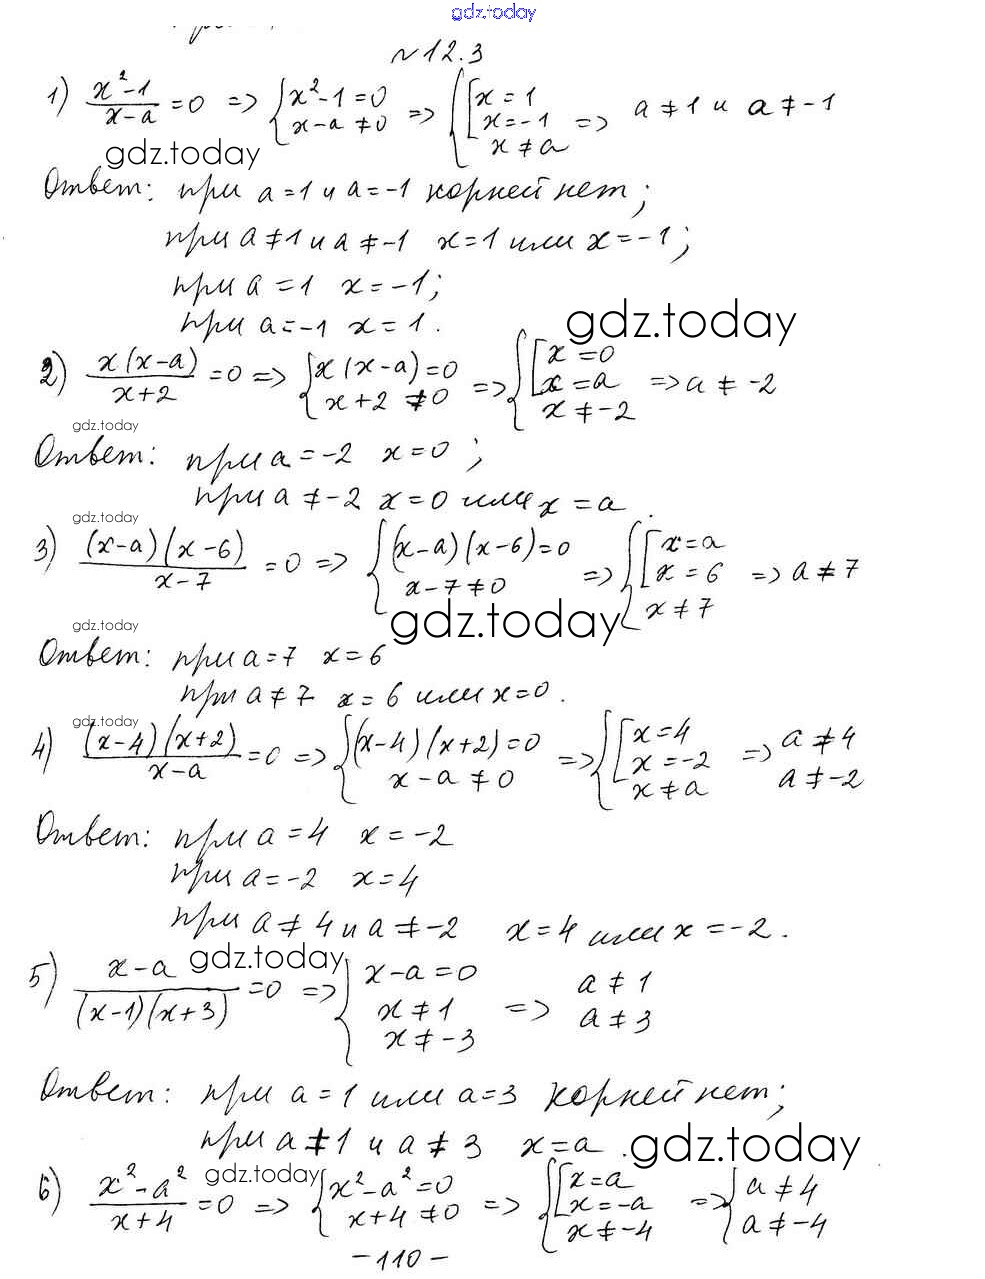 gdz.today
№12.3
1) (x²-1)/(x-a) = 0 => { x²-1=0; x-a≠0 => { [ x=1; x=-1; x≠a => a≠1 и a≠-1
gdz.today
Ответ: при a=1 и a=-1 корней нет;
при a≠1 и a≠-1 x=1 или x=-1;
при a=1 x=-1;
при a=-1 x=1.
gdz.today
2) x(x-a)/(x+2) = 0 => { x(x-a)=0; x+2≠0 => { [ x=0; x=a; x≠-2 => a≠-2
gdz.today
Ответ: при a=-2 x=0;
при a≠-2 x=0 или x=a.
gdz.today
3) (x-a)(x-6)/(x-7) = 0 => { (x-a)(x-6)=0; x-7≠0 => { [ x=a; x=6; x≠7 => a≠7
gdz.today
gdz.today
Ответ: при a=7 x=6
при a≠7 x=6 или x=0.
gdz.today
4) (x-4)(x+2)/(x-a) = 0 => { (x-4)(x+2)=0; x-a≠0 => { [ x=4; x=-2; x≠a => a≠4; a≠-2
Ответ: при a=4 x=-2
при a=-2 x=4
при a≠4 и a≠-2 x=4 или x=-2.
gdz.today
5) (x-a)/((x-1)(x+3)) = 0 => { x-a=0; x≠1; x≠-3 => a≠1; a≠3
Ответ: при a=1 или a=3 корней нет;
при a≠1 и a≠3 x=a.
gdz.today
gdz.today
6) (x²-a²)/(x+4) = 0 => { x²-a²=0; x+4≠0 => { [ x=a; x=-a; x≠-4 => { a≠4; a≠-4
-110-